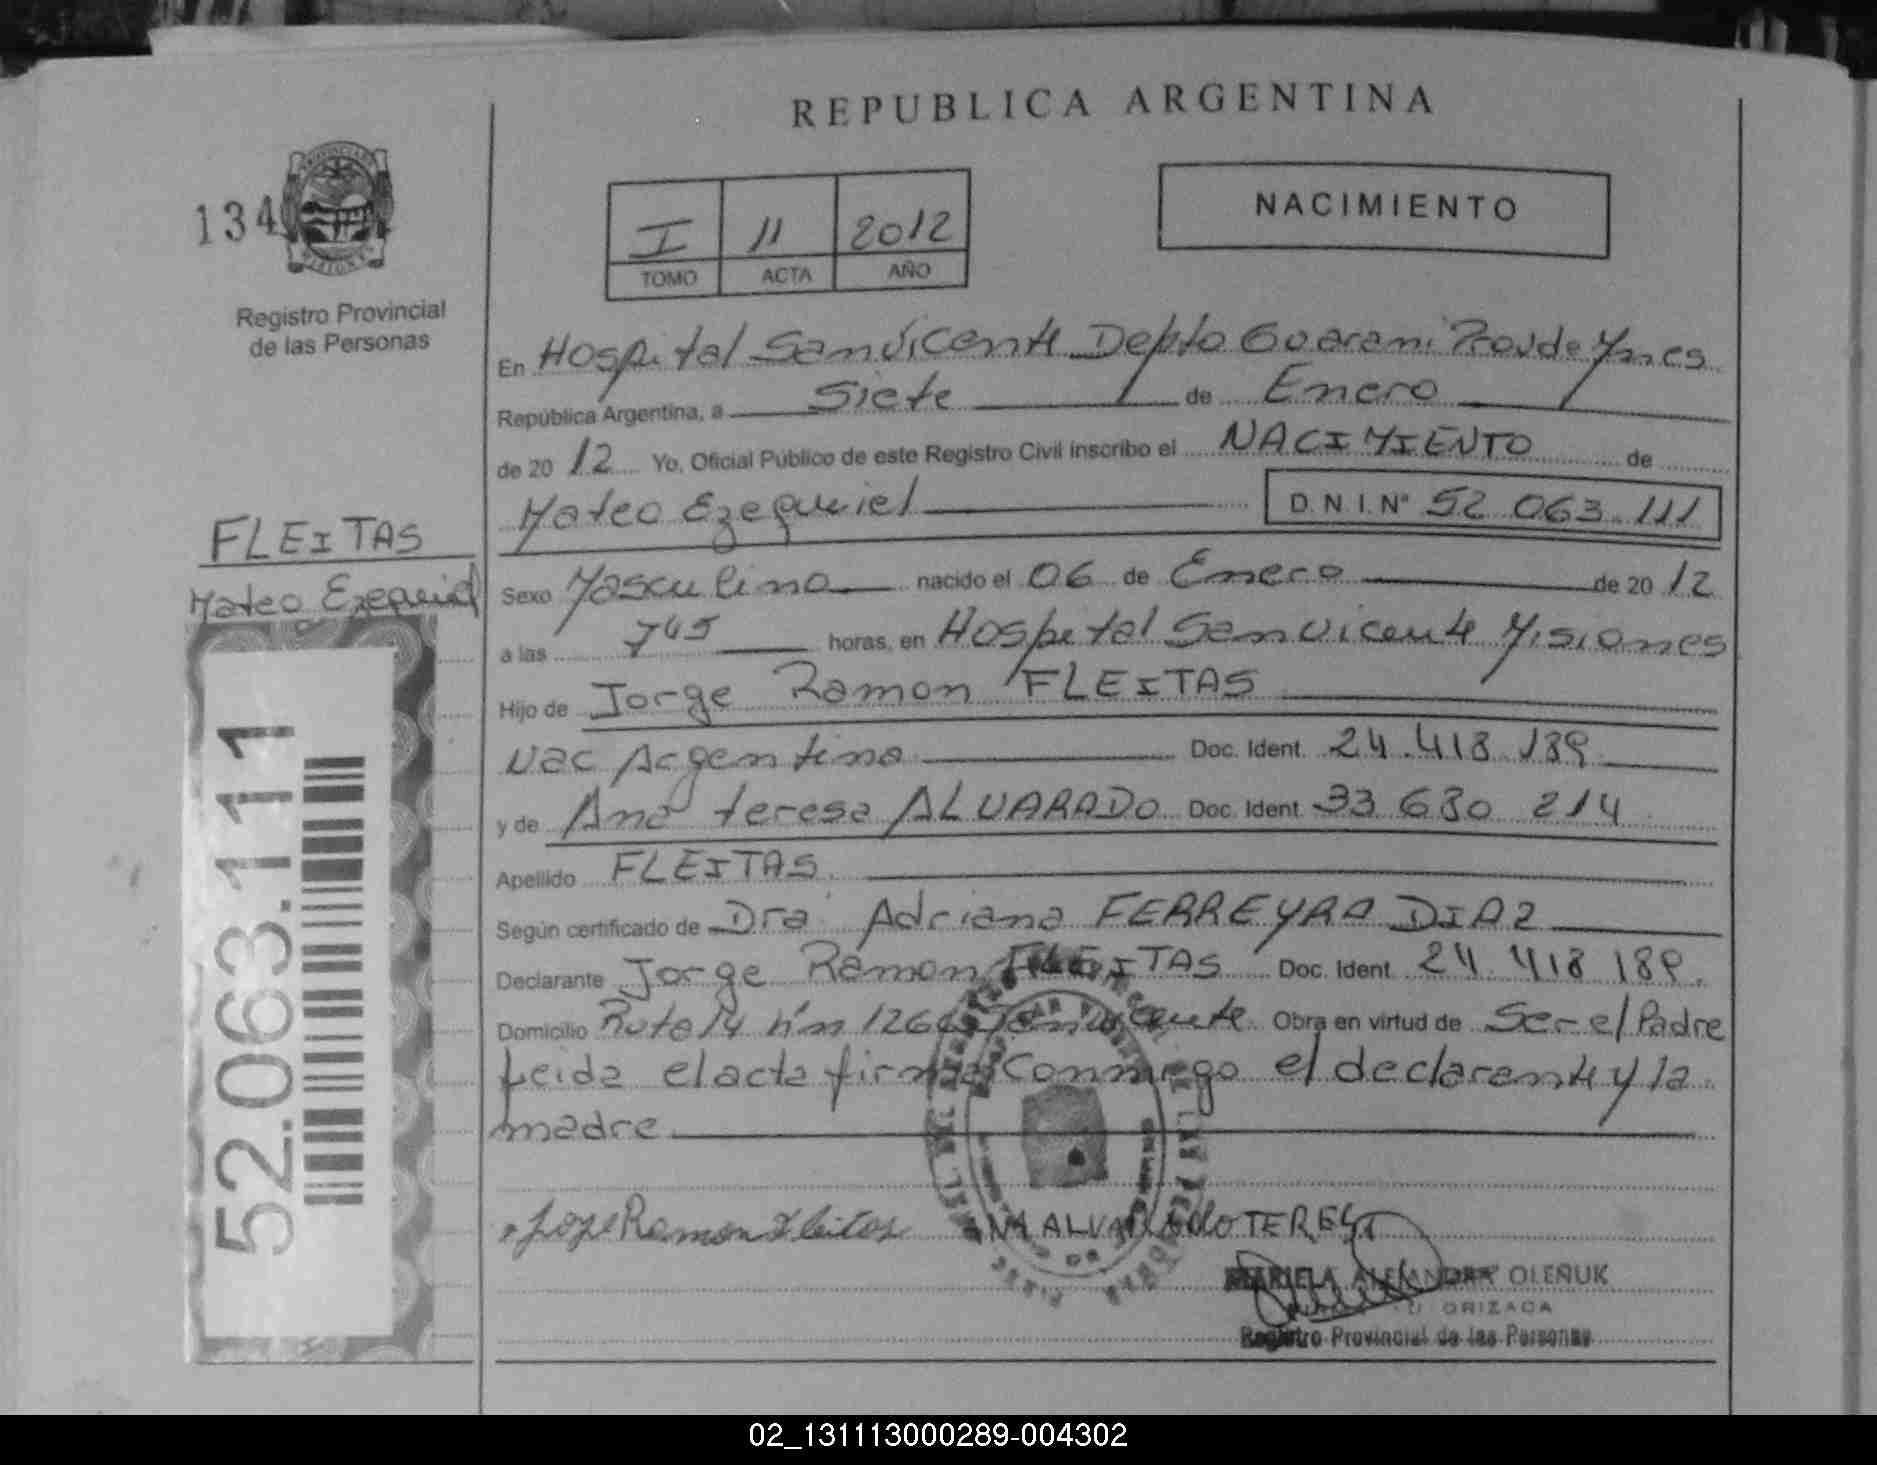 REPUBLICA ARGENTINA
134
Registro Provincial
de las Personas
I 11 2012
TOMO ACTA AÑO
NACIMIENTO
En Hospital San Vicente Depto Guarani Prov de Mnes
República Argentina, a siete de Enero
de 2012 Yo, Oficial Público de este Registro Civil inscribo el NACIMIENTO de
Mateo Ezequiel D.N.I. Nº 52 063 111
FLEITAS
Mateo Ezequiel
Sexo Masculino nacido el 06 de Enero de 2012
a las 745 horas, en Hospital San Vicente Misiones
Hijo de Jorge Ramon FLEITAS
Nac Argentina Doc. Ident. 24.418.189
y de Ana teresa ALVARADO Doc. Ident. 33 630 214
Apellido FLEITAS
Según certificado de Dra Adriana FERREYRA DIAZ
Declarante Jorge Ramon FLEITAS Doc. Ident. 24.418 189.
Domicilio Ruta 14 Obra en virtud de Ser el Padre
Leida el acta firma Conmigo el declarante y la
madre
52.063.111
Jorge Ramon Fleitas
ANA ALVARADO TERESA
MARIELA ALEJANDRA OLEÑUK
AUTORIZADA
Registro Provincial de las Personas
02_131113000289-004302